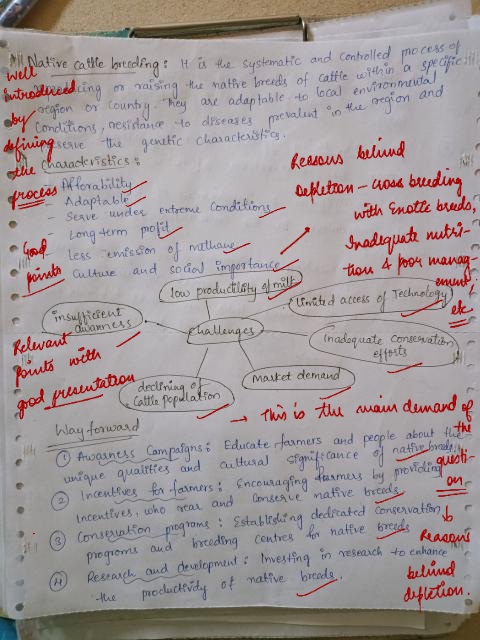 Native cattle breeding : It is the systematic and controlled process of
or raising the native breeds of cattle within a specific
region or country. They are adaptable to local environmental
conditions, resistance to diseases prevalent in the region and
the genetic characteristics.
Well
introduced
by
defining
the
process
Characteristics :
- Afforability
- Adaptable
- Serve under extreme conditions
- Long term profit
- Less emission of methane
- Culture and social importance
Good
points
Reasons behind
depletion - cross breeding
with Exotic breeds,
Inadequate nutri-
tion & poor manag-
ement,
etc
low productility of milk
Limited access of Technology
insufficient
awarness
challenges
Inadequate Conservation
efforts
declining of
Cattle population
Market demand
Relevant
points with
good presentation
→ This is the main demand of
the
questi-
on
Reasons
behind
depletion.
Way forward
① Awarness Campaigns : Educate farmers and people about the
unique qualities and cultural significance of native breeds
② Incentives for farmers : Encouraging farmers by providing
Incentives, who rear and conserve native breeds
③ Conservation programs : Establishing dedicated conservation
programs and breeding centres for native breeds
④ Research and development : Investing in research to enhance
the productivity of native breeds.